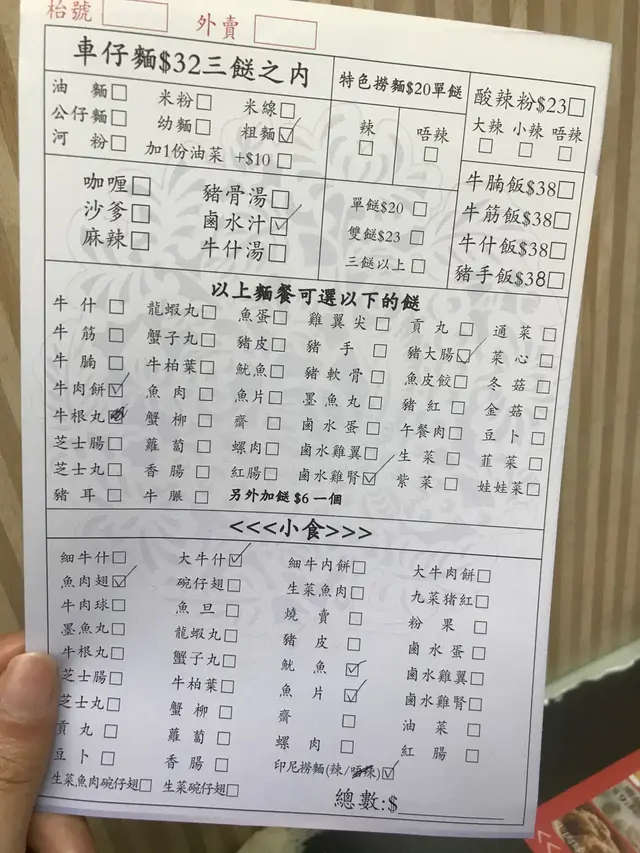 枱號 外賣
車仔麵$32三餸之內
油麵 米粉 米線
公仔麵 幼麵 粗麵
河粉 加1份油菜 +$10
特色撈麵$20單餸
辣 唔辣
酸辣粉$23
大辣 小辣 唔辣
咖喱 豬骨湯
沙爹 鹵水汁
麻辣 牛什湯
單餸$20
雙餸$23
三餸以上
牛腩飯$38
牛筋飯$38
牛什飯$38
豬手飯$38
以上麵餐可選以下的餸
牛什 龍蝦丸 魚蛋 雞翼尖 貢丸 通菜
牛筋 蟹子丸 豬皮 豬手 豬大腸 菜心
牛腩 牛柏葉 魷魚 豬軟骨 魚皮餃 冬菇
牛肉餅 魚肉 魚片 墨魚丸 豬紅 金菇
牛根丸 蟹柳 齋 鹵水蛋 午餐肉 豆卜
芝士腸 蘿蔔 螺肉 鹵水雞翼 生菜 韮菜
芝士丸 香腸 紅腸 鹵水雞腎 紫菜 娃娃菜
豬耳 牛脹 另外加餸$6一個
<<<小食>>>
細牛什 大牛什 細牛內餅 大牛肉餅
魚肉翅 碗仔翅 生菜魚肉 九菜猪紅
牛肉球 魚旦 燒賣 粉果
墨魚丸 龍蝦丸 豬皮 鹵水蛋
牛根丸 蟹子丸 魷魚 鹵水雞翼
芝士腸 牛柏葉 魚片 鹵水雞腎
芝士丸 蟹柳 齋 油菜
貢丸 蘿蔔 螺肉 紅腸
豆卜 香腸 印尼撈麵(辣/唔辣)
生菜魚肉碗仔翅 生菜碗仔翅
總數:$